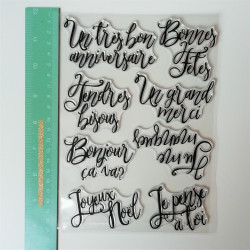 Un très bon
anniversaire
Bonnes
Fêtes
Tendres
bisous
Un grand
merci
Bonjour
ça va?
Joyeux
Noël
Je pense
à toi